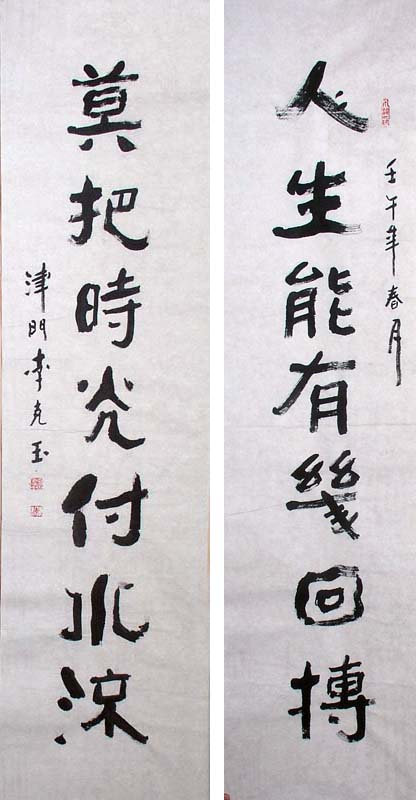 人生能有幾回搏
壬午年春月
莫把時光付水涼
津門李克玉